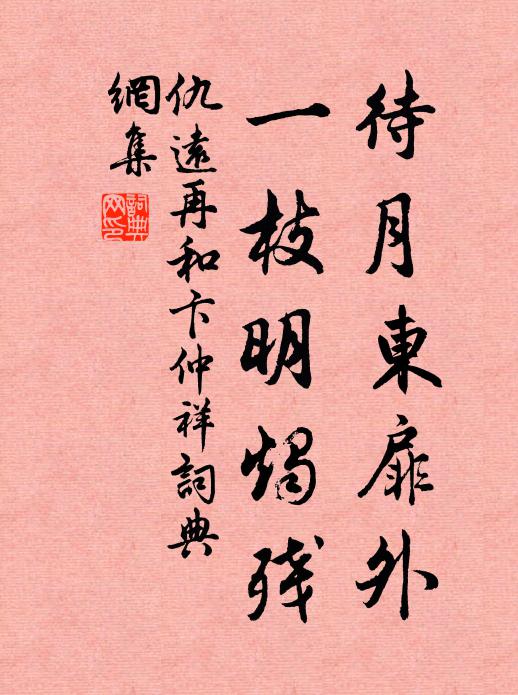 待月東扉外
一枝明燭残
仇遠再和卞仲祥詞典
網集
詞典
网印